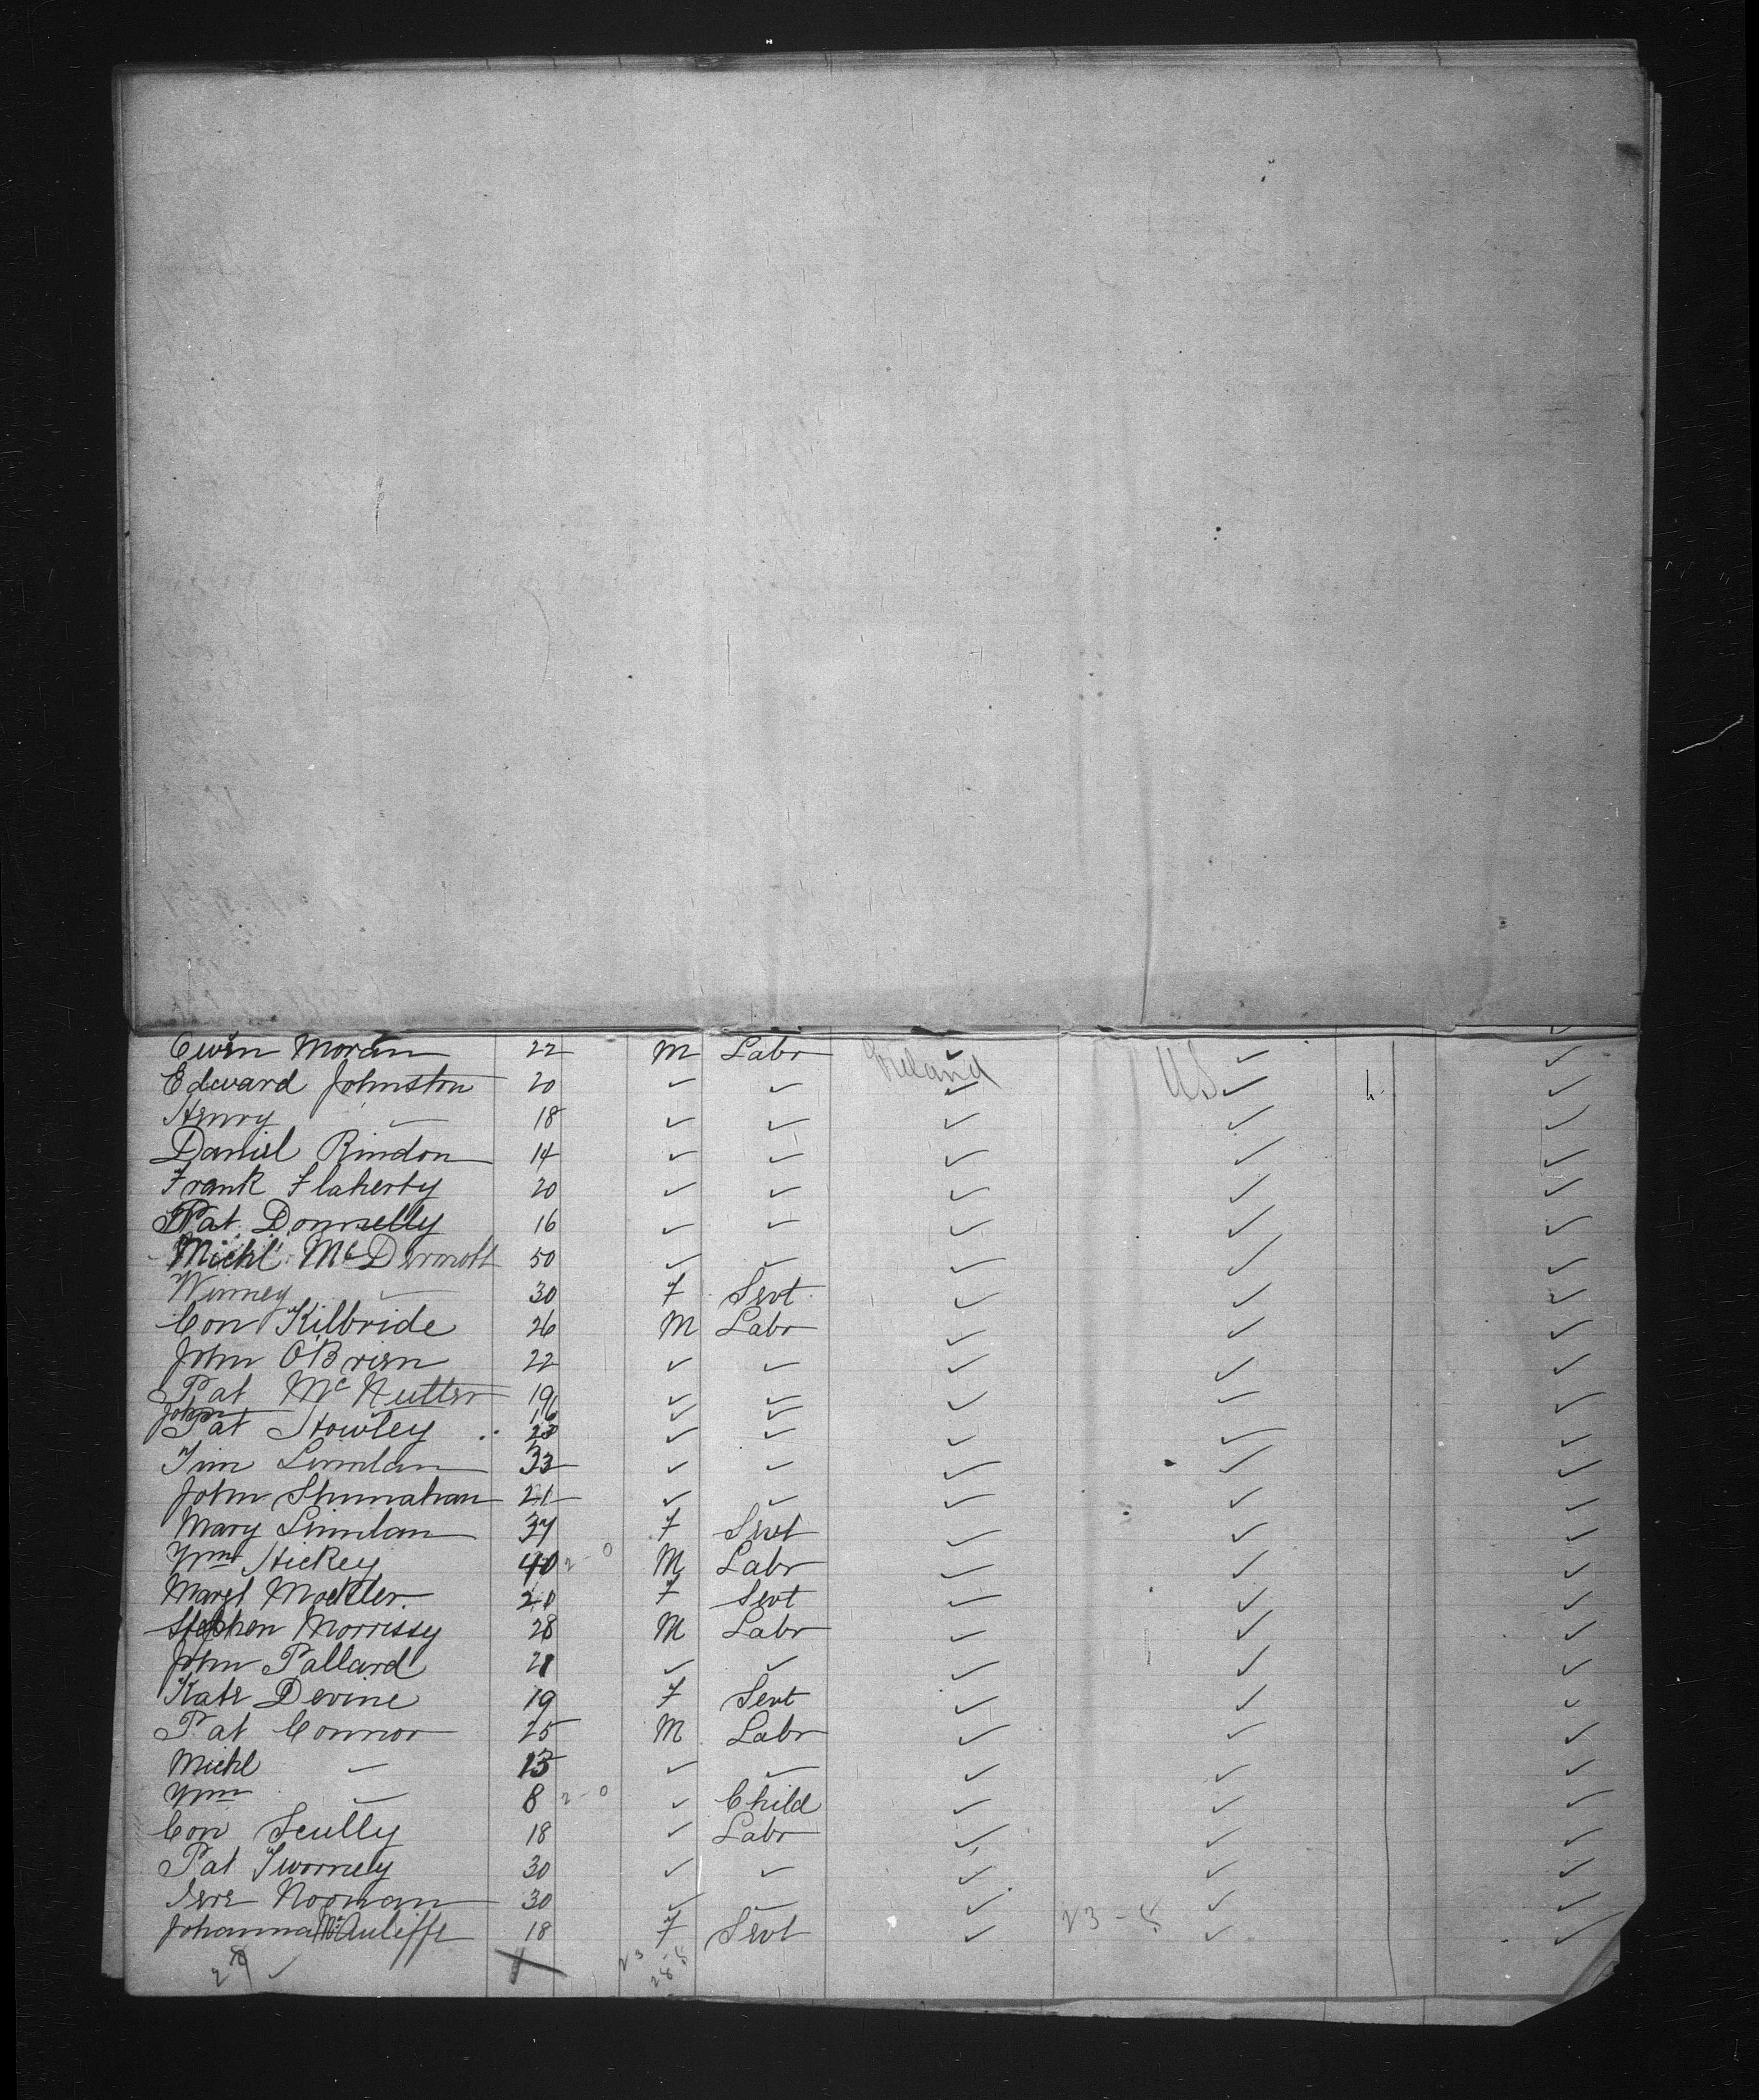 Ewin Moran 22 M Labr Ireland ✓ US ✓ ✓
Edward Johnston 20 ✓ ✓ ✓ ✓ ✓
Henry — 18 ✓ ✓ ✓ ✓ ✓
Daniel Rindon 14 ✓ ✓ ✓ ✓ ✓
Frank Flaherty 20 ✓ ✓ ✓ ✓ ✓
Pat Donnelly 16 ✓ ✓ ✓ ✓ ✓
Michl McDermott 50 ✓ ✓ ✓ ✓ ✓
Winney — 30 F Servt ✓ ✓ ✓
Con Kilbride 26 M Labr ✓ ✓ ✓
John O'Brien 22 ✓ ✓ ✓ ✓ ✓
Pat McNutter 19 ✓ ✓ ✓ ✓ ✓
John 16 ✓ ✓
Pat Howley 23 ✓ ✓ ✓ ✓ ✓
Tim 33 ✓ ✓ ✓ ✓ ✓
John Shunahan 21 ✓ ✓ ✓ ✓ ✓
Mary 37 F Servt ✓ ✓ ✓
Wm Hickey 40 2-0 M Labr ✓ ✓ ✓
Margt Mockler 20 F Servt ✓ ✓ ✓
Stephen Morrissy 28 M Labr ✓ ✓ ✓
John Pallard 21 ✓ ✓ ✓ ✓ ✓
Kate Devine 19 F Servt ✓ ✓ ✓
Pat Connor 25 M Labr ✓ ✓ ✓
Michl — 13 ✓ ✓ ✓ ✓ ✓
Wm — 8 2-0 ✓ Child ✓ ✓ ✓
Con Scully 18 ✓ Labr ✓ ✓ ✓
Pat Twomey 30 ✓ ✓ ✓ ✓ ✓
Jere Noonan 30 ✓ ✓ ✓ ✓ ✓
Johanna McAuliffe 18 F Servt ✓ 23-5 ✓ ✓